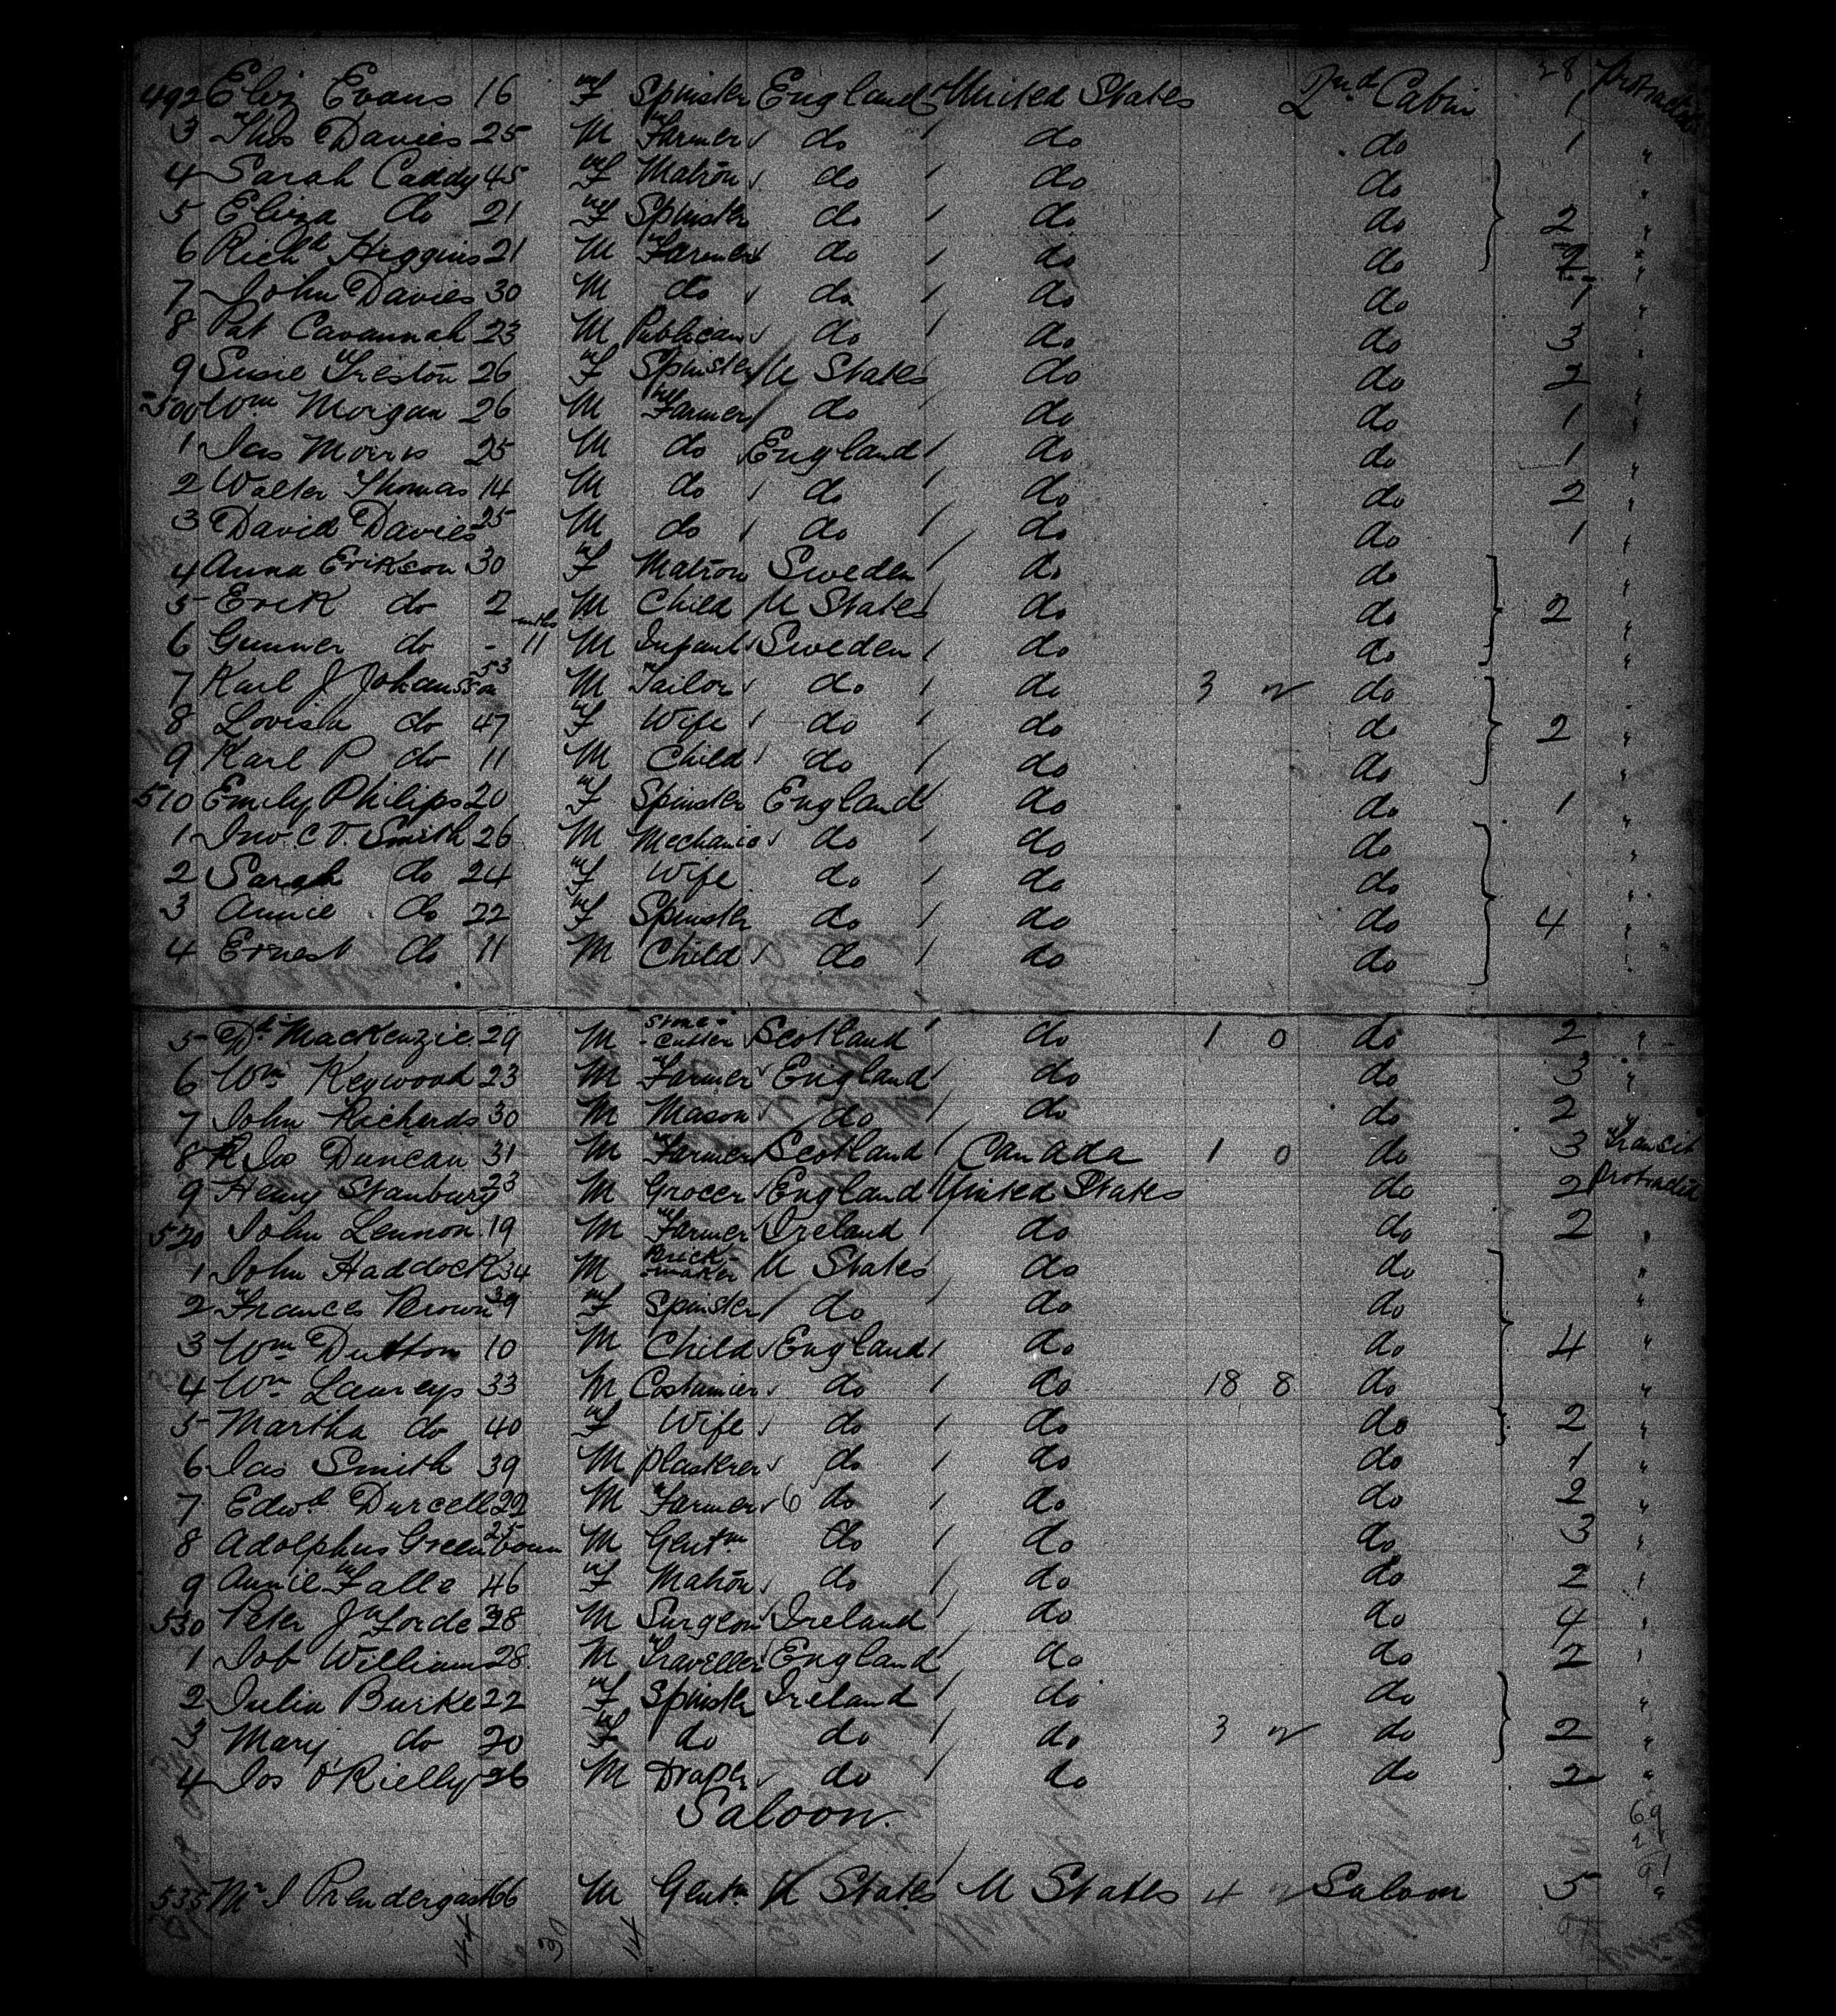 28
492 Eliz Evans 16 F Spinster England United States 2nd Cabin 1 Protracted
3 Thos Davies 25 M Farmer do do do 1 "
4 Sarah Caddy 45 F Matron do do do "
5 Eliza do 21 F Spinster do do do 2 "
6 Richd Higgins 21 M Farmer do do do 2 "
7 John Davies 30 M do do do do 1 "
8 Pat Cavannah 23 M Publican do do do 3 "
9 Susie Treston 26 F Spinster U States do do 2 "
500 Wm Morgan 26 M Farmer do do do 1 "
1 Jas Morris 25 M do England do do 1 "
2 Walter Thomas 14 M do do do do 2 "
3 David Davies 25 M do do do do 1 "
4 Anna Erikson 30 F Matron Sweden do do "
5 Erik do 2 M Child U States do do 2 "
6 Gunner do - mths 11 M Infant Sweden do do "
7 Karl J Johansson 53 M Tailor do do 3 do "
8 Lovisa do 47 F Wife do do do 2 "
9 Karl P do 11 M Child do do do "
510 Emily Philips 20 F Spinster England do do 1 "
1 Jno. C V. Smith 26 M Mechanic do do do "
2 Sarah do 24 F Wife do do do "
3 Annie do 22 F Spinster do do do 4 "
4 Ernest do 11 M Child do do do "
5 Dd MacKenzie 29 M Stone-cutter Scotland do 1 0 do 2 "
6 Wm Keywood 23 M Farmer England do do 3 "
7 John Richards 30 M Mason do do do 2
8 Duncan 31 M Farmer Scotland Canada 1 0 do 3 Transit
9 Henry Stanbury 23 M Grocer England United States do 2 Protracted
520 John Lennon 19 M Farmer Ireland do do 2 "
1 John Haddock 34 M Brick-maker U States do do "
2 Frances Brown 39 F Spinster do do do "
3 Wm Dutton 10 M Child England do do 4 "
4 Wm Laureys 33 M Costumier do do 18 8 do "
5 Martha do 40 F Wife do do do 2 "
6 Jas Smith 39 M Plasterer do do do 1 "
7 Edwd Purcell 22 M Farmer do do do 2 "
8 Adolphus Greenbaum 25 M Gentm do do do 3 "
9 Annie Falle 46 F Matron do do do 2 "
530 Peter J Forde 28 M Surgeon Ireland do do 4 "
1 Job Williams 28 M Traveller England do do 2 "
2 Julia Burke 22 F Spinster Ireland do do "
3 Mary do 20 F do do do 3 do 2 "
4 Jos O'Rielly 26 M Draper do do do 2 "
Saloon.
69
535 Mr J Prendergast 66 M Gentn U States U States 4 Saloon 5 "
44 30 14